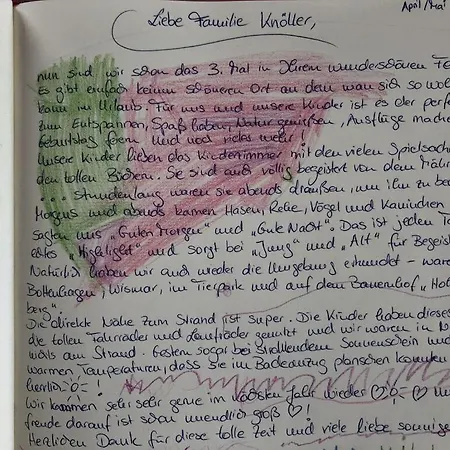 April/Mai
Liebe Familie Knöller,
nun sind wir schon das 3. Mal in Ihrem wunderschönen Fe
Es gibt einfach keinen schöneren Ort an dem man sich so wohl
kann im Urlaub. Für uns und unsere Kinder ist es der perfe
zum Entspannen, Spaß haben, Natur genießen, Ausflüge mache
Geburtstag feiern und noch vieles mehr!
Unsere Kinder lieben das Kinderzimmer mit den vielen Spielsach
den tollen Büchern. Sie sind auch völlig begeistert von dem Mähr
... stundenlang waren sie abends draußen, um ihn zu be
Morgens und abends kamen Hasen, Rehe, Vögel und Kaninchen
sagten uns "Guten Morgen" und "Gute Nacht". Das ist jeden Ta
echtes "Highlight" und sorgt bei "Jung" und "Alt" für Begeis
Natürlich haben wir auch wieder die Umgebung erkundet - ware
Boltenhagen, Wismar, im Tierpark und auf dem Bauernhof "Hol
berg".
Die direkte Nähe zum Strand ist super. Die Kinder haben dieses
die tollen Fahrräder und Laufräder genutzt und wir waren
mals am Strand. Gestern sogar bei strahlendem Sonnenschein und
warmen Temperaturen, dass sie im Badeanzug planschen konnten
herrlich!
Wir kommen sehr, sehr gerne im nächsten Jahr wieder
freude darauf ist schon unendlich groß!
Herzlichen Dank für diese tolle Zeit und viele liebe sonnige